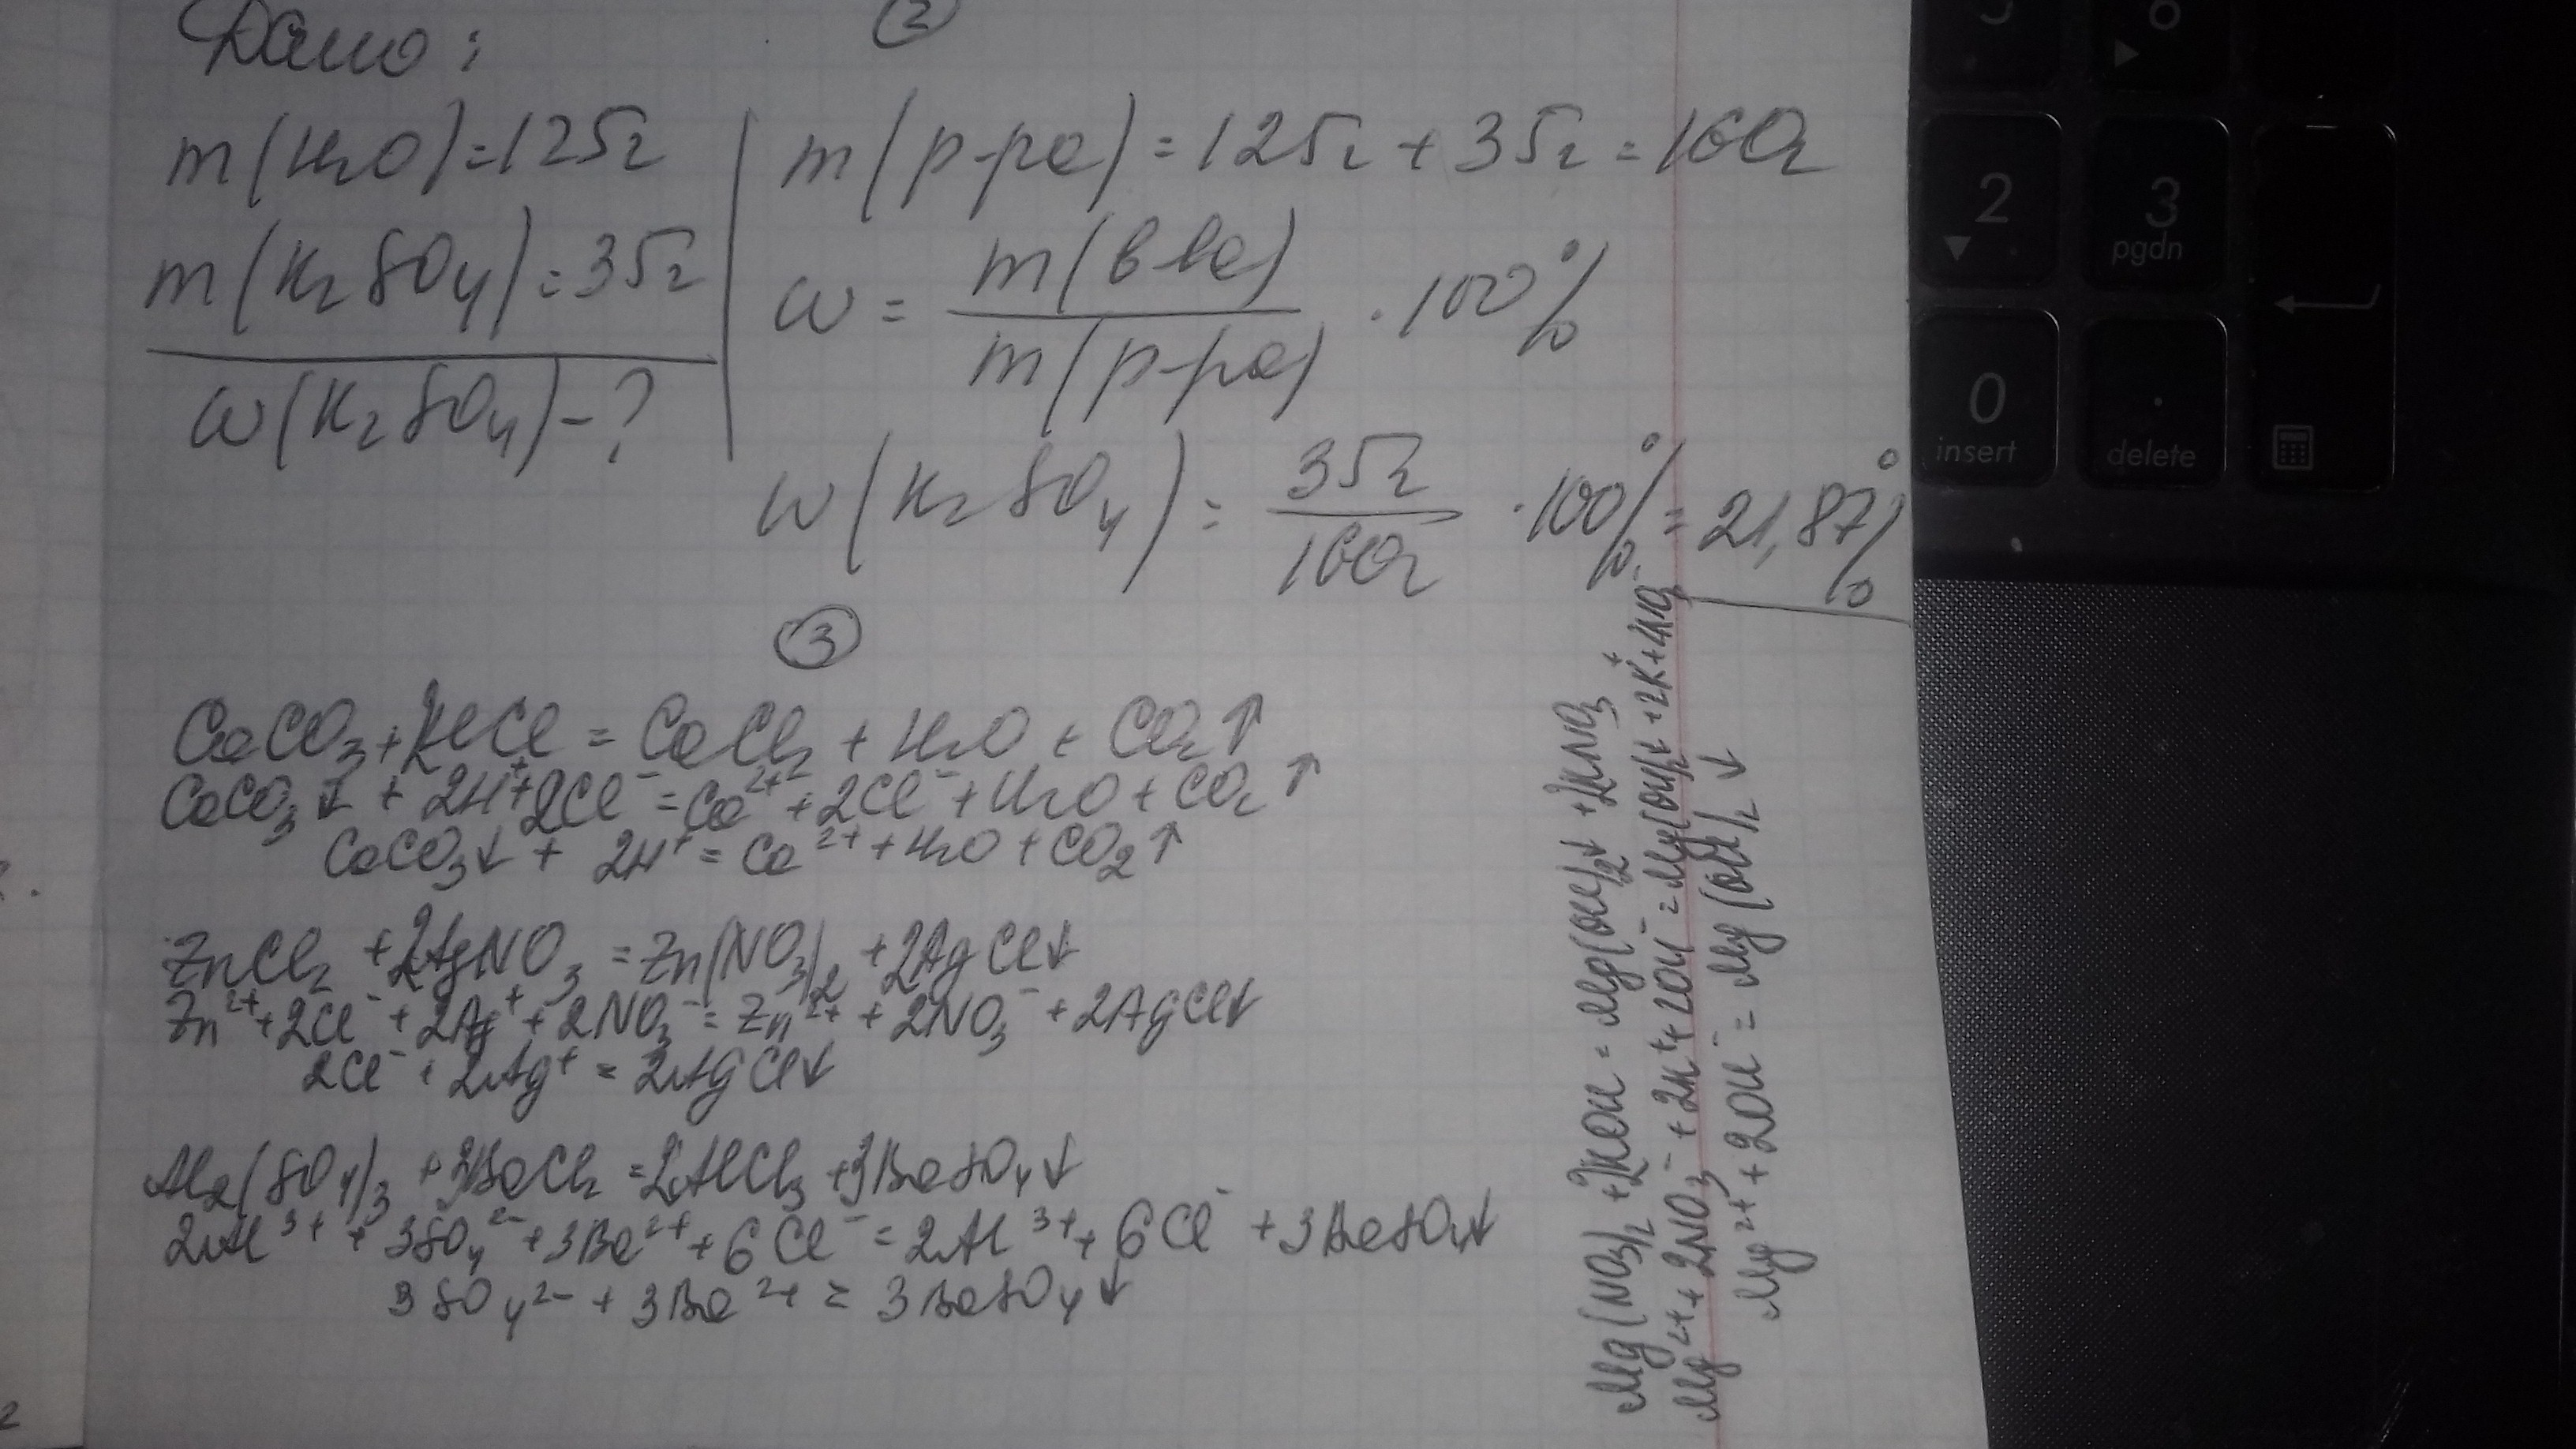 ②
Дано:
m(H₂O)=125г
m(K₂SO₄)=35г
ω(K₂SO₄)-?
m(р-ра)=125г+35г=160г
ω = m(в-ва) / m(р-ра) · 100%
ω(K₂SO₄) = 35г / 160г · 100% = 21,87%
③
CaCO₃+2HCl = CaCl₂ + H₂O + CO₂↑
CaCO₃↓ + 2H⁺+2Cl⁻ = Ca²⁺+2Cl⁻+H₂O+CO₂↑
CaCO₃↓ + 2H⁺ = Ca²⁺+H₂O+CO₂↑
ZnCl₂ +2AgNO₃ = Zn(NO₃)₂ +2AgCl↓
Zn²⁺+2Cl⁻+2Ag⁺+2NO₃⁻ = Zn²⁺+2NO₃⁻+2AgCl↓
2Cl⁻+2Ag⁺ = 2AgCl↓
Al₂(SO₄)₃ +3BaCl₂ = 2AlCl₃ +3BaSO₄↓
2Al³⁺+3SO₄²⁻+3Ba²⁺+6Cl⁻ = 2Al³⁺+6Cl⁻+3BaSO₄↓
3SO₄²⁻+3Ba²⁺ = 3BaSO₄↓
Mg(NO₃)₂ +2KOH = Mg(OH)₂↓ +2KNO₃
Mg²⁺+2NO₃⁻+2K⁺+2OH⁻ = Mg(OH)₂↓+2K⁺+
Mg²⁺+2OH⁻ = Mg(OH)₂↓
2
3
pgdn
0
insert
.
delete